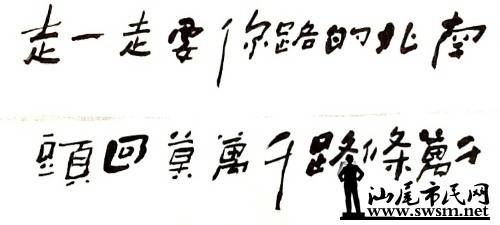 南北的路你要走一走
千萬條路千萬莫回頭
汕尾市民网
www.swsm.net